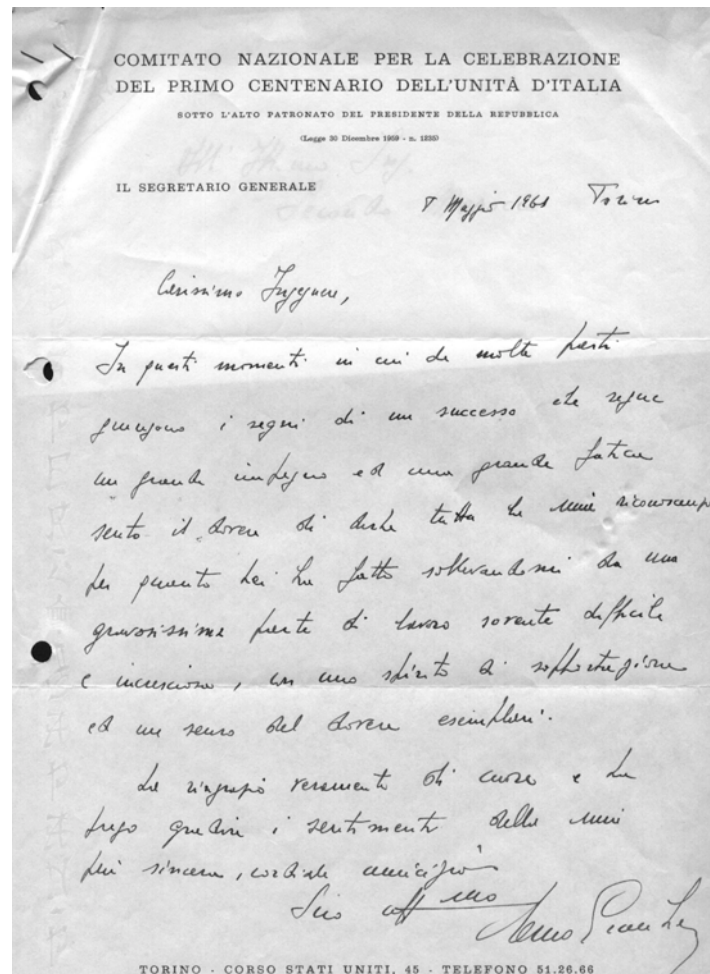 COMITATO NAZIONALE PER LA CELEBRAZIONE
DEL PRIMO CENTENARIO DELL'UNITÀ D'ITALIA
SOTTO L'ALTO PATRONATO DEL PRESIDENTE DELLA REPUBBLICA
(Legge 30 Dicembre 1959 - n. 1235)
IL SEGRETARIO GENERALE
8 Maggio 1961 Torino
Carissimo Ingegnere,
In questi momenti in cui da molte parti
giungono i segni di un successo che segue
un grande impegno ed una grande fatica
sento il dovere di dirle tutta la mia riconoscenza
per quanto Lei ha fatto sollevandomi da una
gravosissima parte di lavoro sovente difficile
e incresciosa, con uno spirito di sopportazione
ed un senso del dovere esemplari.
La ringrazio veramente di cuore e La
prego gradire i sentimenti della mia
più sincera, cordiale amicizia
Suo aff.mo
TORINO - CORSO STATI UNITI, 45 - TELEFONO 51.26.66